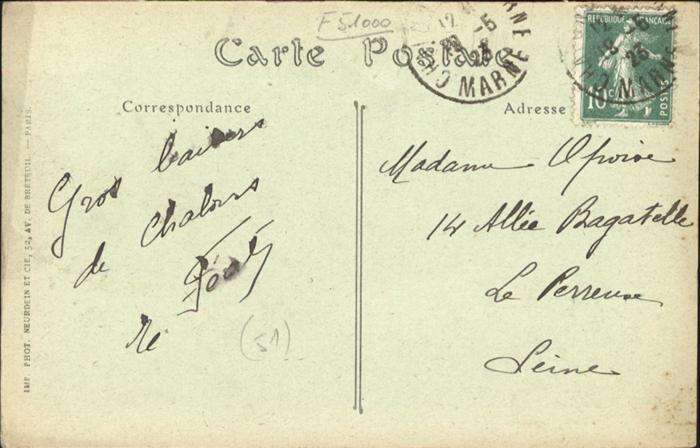 F 51000
Carte Postale
Correspondance
Adresse
Gros baisers
de Chalons
(51)
Madame
14 Allée Bagatelle
Le Perreux
Seine
RÉPUBLIQUE FRANÇAISE
10c POSTES
MARNE
12
MARNE
IMP. PHOT. NEURDEIN ET CIE, 52, AV. DE BRETEUIL. — PARIS.